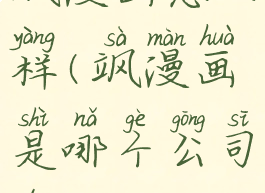 yàng sà màn huà
样(飒漫画
shì nǎ gè gōng sī
是哪个公司